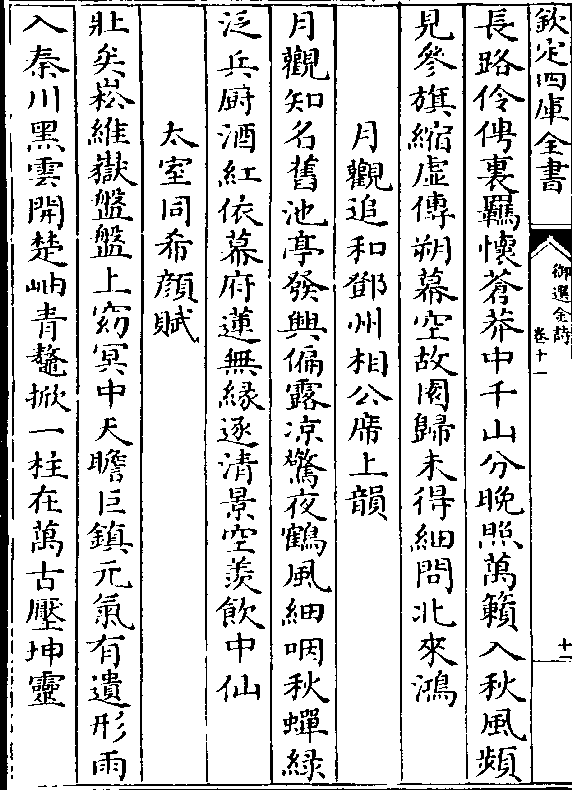 欽定四庫全書
御選金詩
卷十一
十一
長路伶俜裏羈懷蒼莽中千山分晚照萬籟入秋風頻
見參旗縮虛傳朔幕空故園歸未得細問北來鴻
月觀追和鄧州相公席上韻
月觀知名舊池亭發興偏露凉驚夜鶴風細咽秋蟬緑
泛兵廚酒紅依幕府蓮無縁逐清景空羨飲中仙
太室同希顔賦
壯矣崧維嶽盤盤上窈冥中天瞻巨鎮元氣有遺形雨
入秦川黑雲開楚岫青鼇掀一柱在萬古壓坤靈